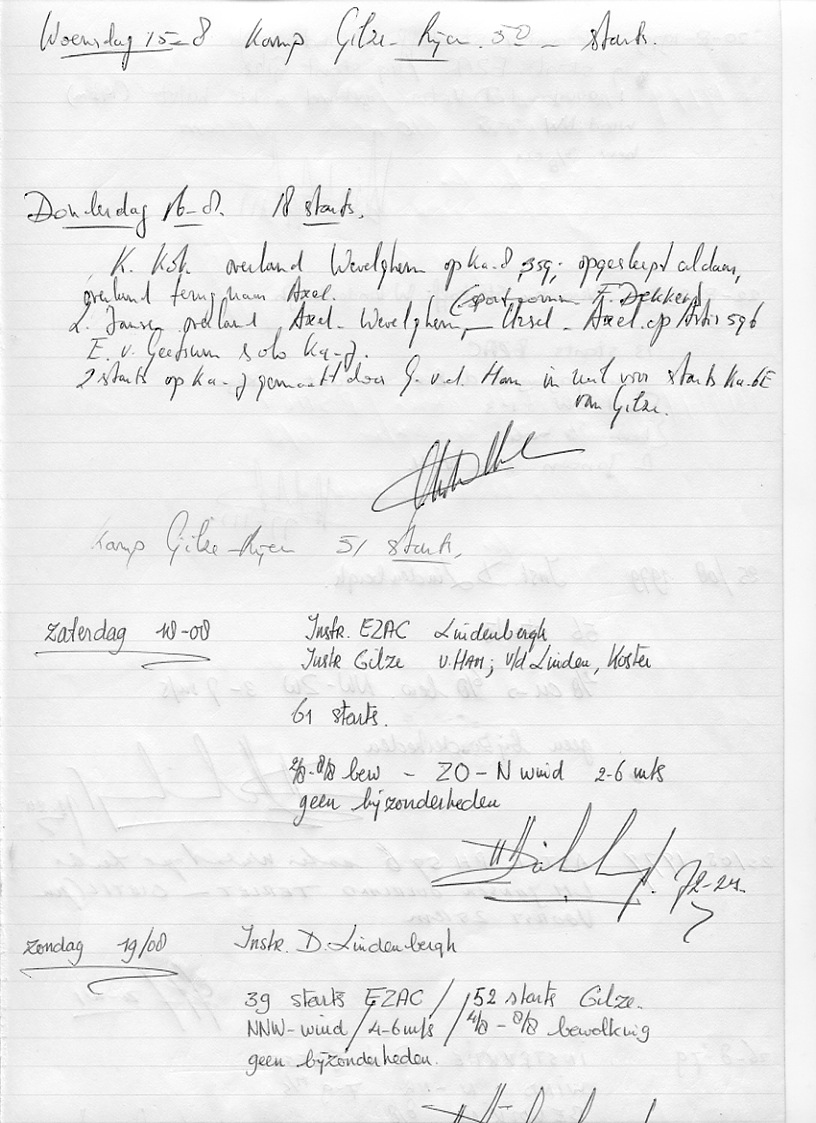 Woensdag 15-8 Kamp Gilze-Rijen. 50 - starts.
Donderdag 16-8. 18 starts.
K. Kok overland Wevelghem op Ka-8 359; opgesleept aldaar,
overland terug naar Axel. (sportgenoot F. Dekkers)
L. Jansen overland Axel-Wevelghem - Ursel - Axel op Astir 596
E. v. Geersum solo Ka-7.
2 starts op Ka-7 gemaakt door G. v.d. Ham in ruil voor starts Ka-6E
van Gilze.
Kamp Gilze-Rijen 51 starts.
Zaterdag 18-08 Instr. EZAC Lindenbergh
Instr Gilze v. HAM; v/d Linden, Koster
61 starts.
2/8-8/8 bew - ZO-N wind 2-6 m/s
geen bijzonderheden
72-24.
Zondag 19/08 Instr. D. Lindenbergh
39 starts EZAC / 52 starts Gilze.
NNW-wind / 4-6 m/s / 4/8 - 8/8 bewolking
geen bijzonderheden.